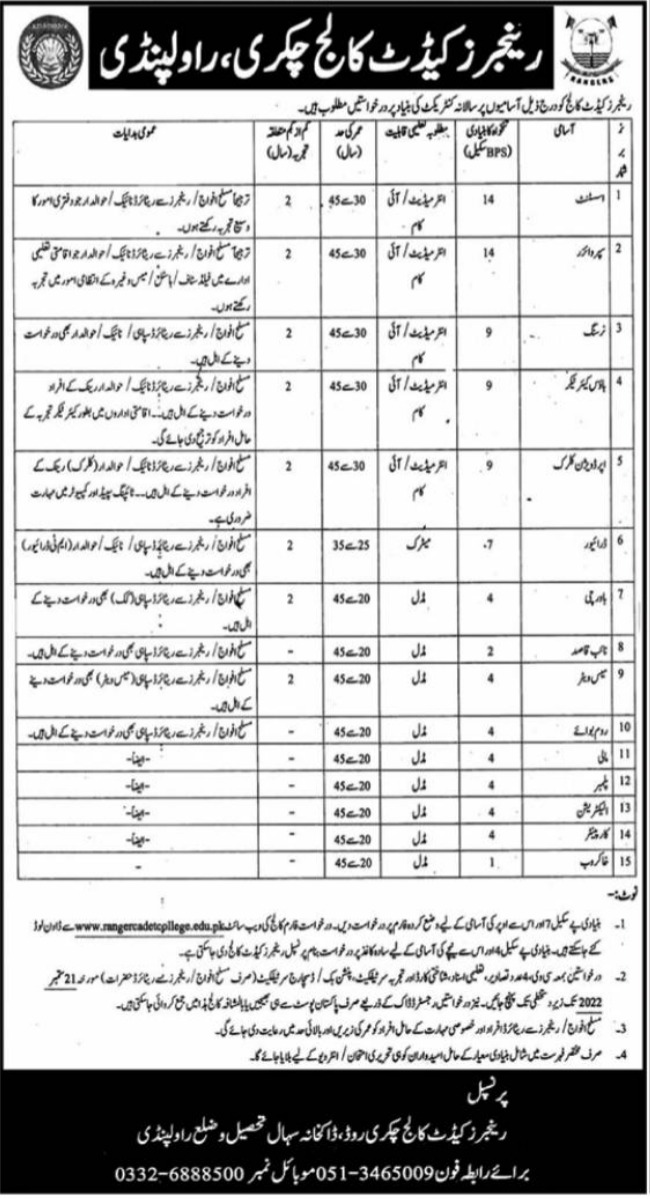 رینجرز کیڈٹ کالج چکری، راولپنڈی
RANGERS
رینجرز کیڈٹ کالج کو درج ذیل آسامیوں پر سالانہ کنٹریکٹ کی بنیاد پر درخواستیں مطلوب ہیں۔
نمبر شمار | آسامی | تنخواہ کا بنیادی سکیل (BPS) | مطلوبہ تعلیمی قابلیت | عمر کی حد (سال) | کم از کم متعلقہ تجربہ (سال) | عمومی ہدایات
1 | اسسٹنٹ | 14 | انٹر میڈیٹ/ آئی کام | 30 سے 45 | 2 | ترجیحاً مسلح افواج/ رینجرز سے ریٹائرڈ نائیک/ حوالدار جو دفتری امور کا
وسیع تجربہ رکھتے ہوں۔
2 | سپروائزر | 14 | انٹر میڈیٹ/ آئی کام | 30 سے 45 | 2 | ترجیحاً مسلح افواج/ رینجرز سے ریٹائرڈ نائیک/ حوالدار جو اقامتی تعلیمی
ادارے میں فیلڈ سٹاف/ ہاسٹل/ میس وغیرہ کے انتظامی امور میں تجربہ
رکھتے ہوں۔
3 | نرسنگ | 9 | انٹر میڈیٹ/ آئی کام | 30 سے 45 | 2 | مسلح افواج/ رینجرز سے ریٹائرڈ سپاہی/ نائیک/ حوالدار بھی درخواست
دینے کے اہل ہیں۔
4 | ہاؤس کیئر ٹیکر | 9 | انٹر میڈیٹ/ آئی کام | 30 سے 45 | 2 | مسلح افواج/ رینجرز سے ریٹائرڈ نائیک/ حوالدار رینک کے افراد
درخواست دینے کے اہل ہیں۔ اقامتی اداروں میں بطور کیئر ٹیکر تجربہ کے
حامل افراد کو ترجیح دی جائے گی۔
5 | اپر ڈویژن کلرک | 9 | انٹر میڈیٹ/ آئی کام | 30 سے 45 | 2 | مسلح افواج/ رینجرز سے ریٹائرڈ نائیک/ حوالدار (کلرک) رینک کے
افراد درخواست دینے کے اہل ہیں۔ ٹائپنگ سپیڈ اور کمپیوٹر میں مہارت
ضروری ہے۔
6 | ڈرائیور | 7 | میٹرک | 25 سے 35 | 2 | مسلح افواج/ رینجرز سے ریٹائرڈ سپاہی/ نائیک/ حوالدار (ایم ٹی ڈرائیور)
بھی درخواست دینے کے اہل ہیں۔
7 | باورچی | 4 | مڈل | 20 سے 45 | 2 | مسلح افواج/ رینجرز سے ریٹائرڈ سپاہی (کک) بھی درخواست دینے کے
اہل ہیں۔
8 | نائب قاصد | 2 | مڈل | 20 سے 45 | - | مسلح افواج/ رینجرز سے ریٹائرڈ سپاہی بھی درخواست دینے کے اہل ہیں۔
9 | میس ویٹر | 4 | مڈل | 20 سے 45 | 2 | مسلح افواج/ رینجرز سے ریٹائرڈ سپاہی (میس ویٹر) بھی درخواست دینے
کے اہل ہیں۔
10 | روم بوائے | 4 | مڈل | 20 سے 45 | - | مسلح افواج/ رینجرز سے ریٹائرڈ سپاہی بھی درخواست دینے کے اہل ہیں۔
11 | مالی | 4 | مڈل | 20 سے 45 | - | -ایضاً-
12 | پلمبر | 4 | مڈل | 20 سے 45 | - | -ایضاً-
13 | الیکٹریشن | 4 | مڈل | 20 سے 45 | - | -ایضاً-
14 | کارپینٹر | 4 | مڈل | 20 سے 45 | - | -ایضاً-
15 | خاکروب | 1 | مڈل | 20 سے 45 | - | -
نوٹ:-
1۔ بنیادی پے سکیل 7 اور اس سے اوپر کی آسامی کے لیے وضع کردہ فارم پر درخواست دیں۔ درخواست فارم کالج کی ویب سائٹ www.rangercadetcpllege.edu.pk سے ڈاؤن لوڈ
کئے جاسکتے ہیں۔ بنیادی پے سکیل 4 اور اس سے نیچے کی آسامی کے لیے سادہ کاغذ پر درخواست بنام پرنسپل رینجرز کیڈٹ کالج دی جاسکتی ہے۔
2۔ درخواستیں بمعہ سی وی، 4 عدد تصاویر، تعلیمی اسناد، شناختی کارڈ اور تجربہ سرٹیفکیٹ، پنشن بک/ ڈسچارج سرٹیفکیٹ (صرف مسلح افواج/ رینجرز سے ریٹائرڈ حضرات) مورخہ 21 ستمبر
2022 تک زیر دستخطی تک پہنچ جائیں۔ نیز درخواستیں رجسٹرڈ ڈاک کے ذریعے صرف پاکستان پوسٹ سے ہی بھیجیں یا بالمشافہ کالج ہذا میں جمع کروائی جاسکتی ہیں۔
3۔ مسلح افواج/ رینجرز سے ریٹائرڈ افراد اور خصوصی مہارت کے حامل افراد کو عمر کی زیریں اور بالائی حد میں رعایت دی جائے گی۔
4۔ صرف مختصر فہرست میں شامل بنیادی معیار کے حامل امیدواران کو ہی تحریری امتحان/ انٹرویو کے لیے بلایا جائے گا۔
پرنسپل
رینجرز کیڈٹ کالج چکری روڈ، ڈاکخانہ سہال تحصیل و ضلع راولپنڈی
برائے رابطہ فون 051-3465009 موبائل نمبر 0332-6888500